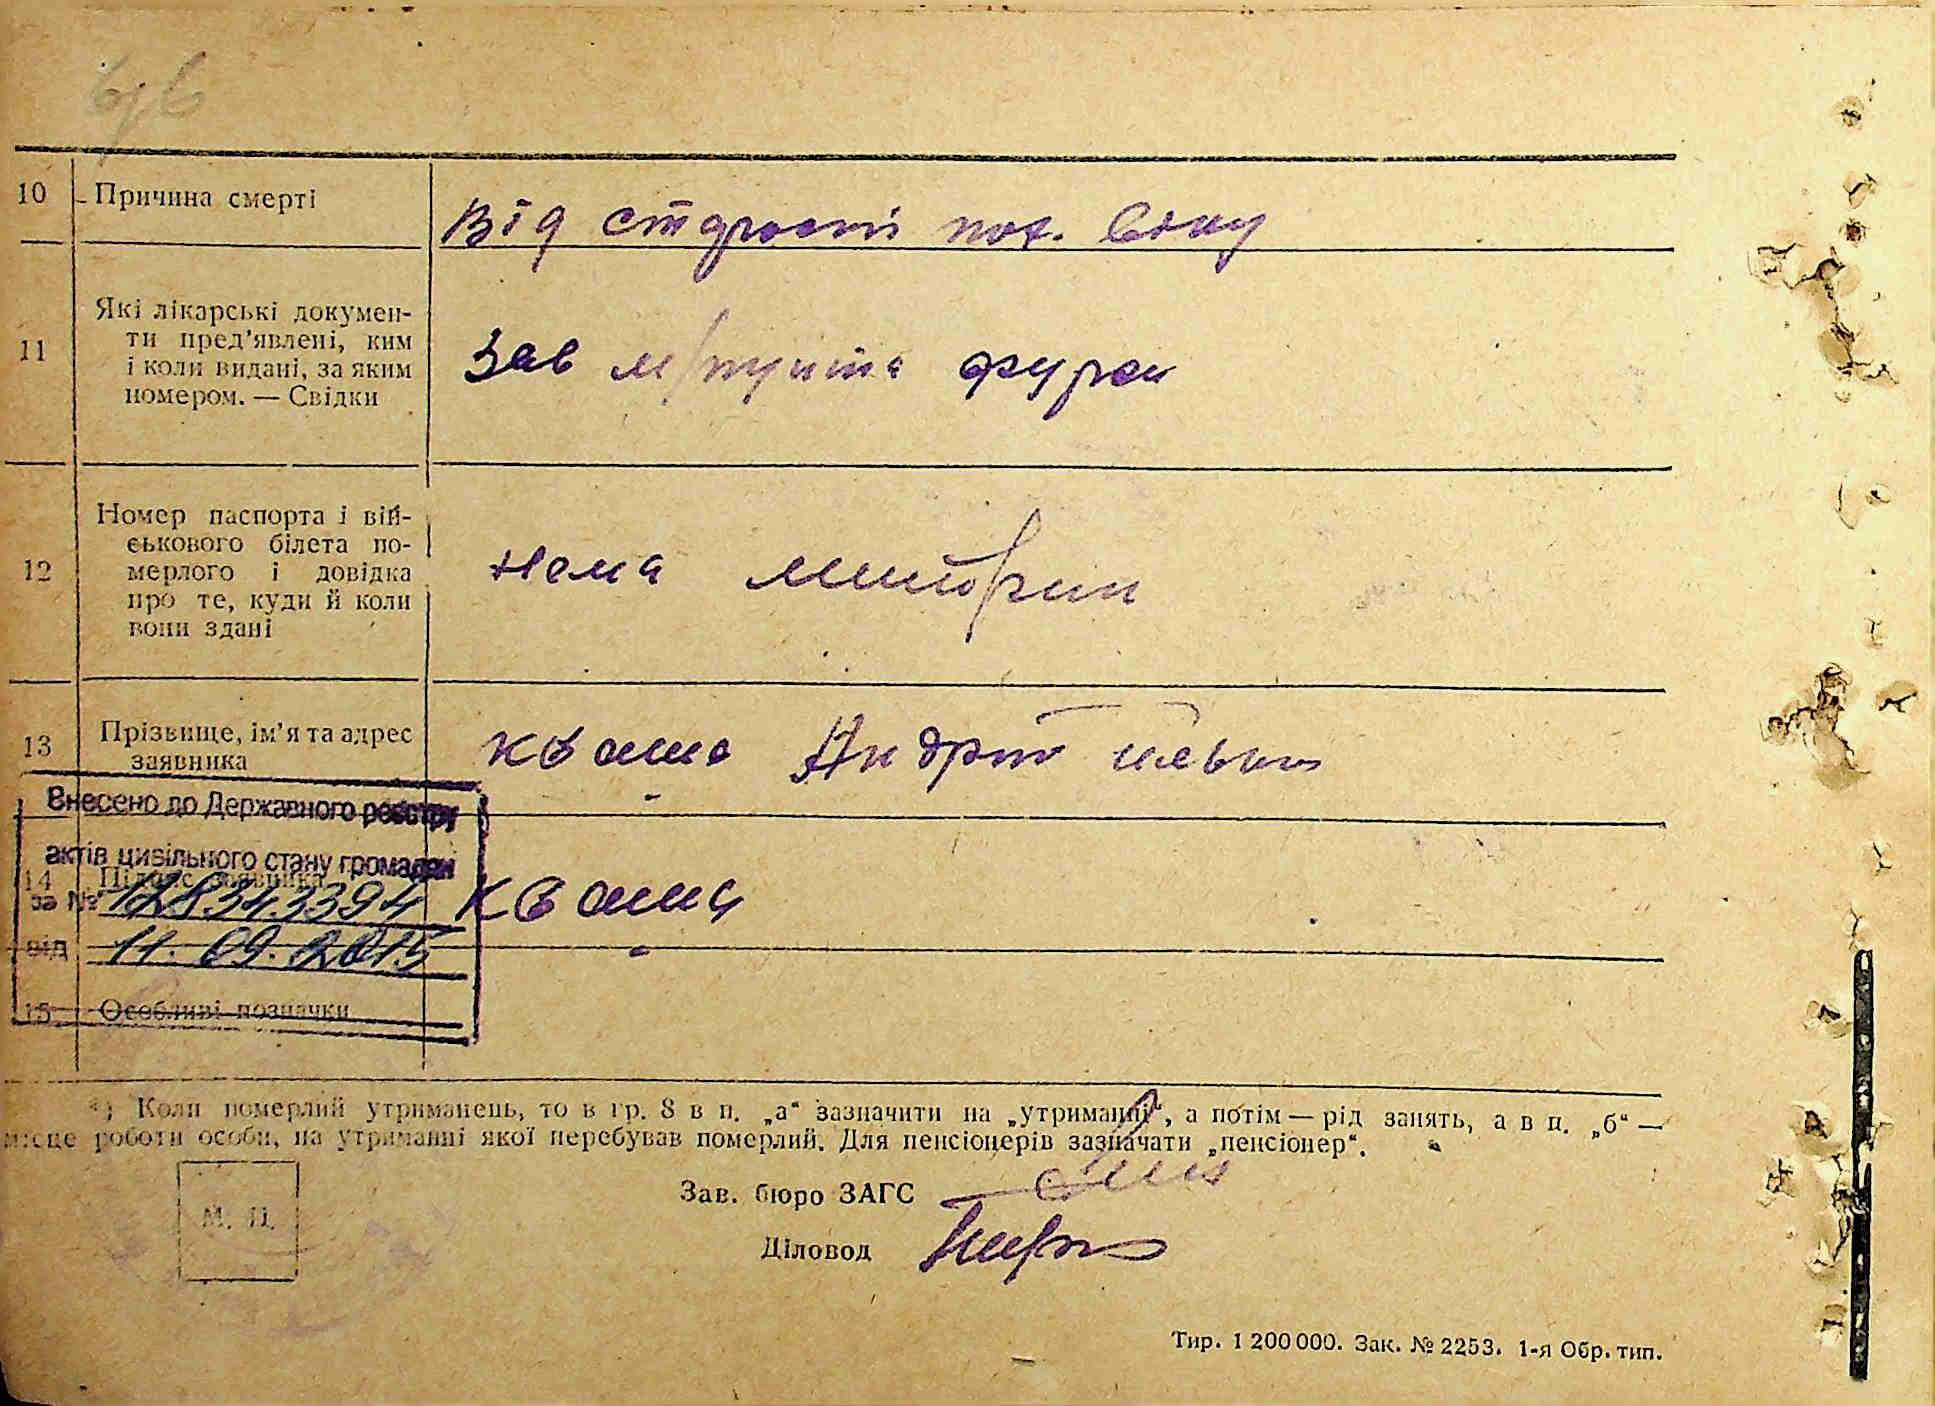 10 Причина смерті
Від старості пох. віку
11 Які лікарські докумен-
ти пред’явлені, ким
і коли видані, за яким
номером. — Свідки
Зав м/пункта
12 Номер паспорта і вій-
ськового білета по-
мерлого і довідка
про те, куди й коли
вони здані
нема
13 Прізвище, ім’я та адрес
заявника
Кваша Андрій
Внесено до Державного реєстру
актів цивільного стану громадян
14 Підпис заявника
Кваша
за № 128343394
від 11.09.2015
15 Особливі позначки
*) Коли померлий утриманець, то в гр. 8 в п. „а“ зазначити на „утриманні“, а потім — рід занять, а в п. „б“ —
місце роботи особи, на утриманні якої перебував померлий. Для пенсіонерів зазначати „пенсіонер“.
М. П.
Зав. бюро ЗАГС
Діловод
Тир. 1 200 000. Зак. № 2253. 1-я Обр. тип.